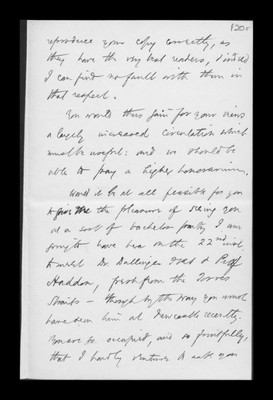 120v
reproduce your copy correctly, as
they have the very best readers, & indeed
I can find no fault with them in
that respect.
You would thus gain for your views
a largely increased circulation which
must be useful: and we should be
able to pay a higher honorarium.
Would it be at all feasible for you
to give me the pleasure of seeing you
at a sort of bachelor party I am
going to have here on the 22nd inst
to meet Dr. Dallinger & Prof
Haddon, fresh from the Torres
Straits — though by the way you must
have seen him at Newcastle recently.
You are so occupied, and so fruitfully,
that I hardly venture to ask you